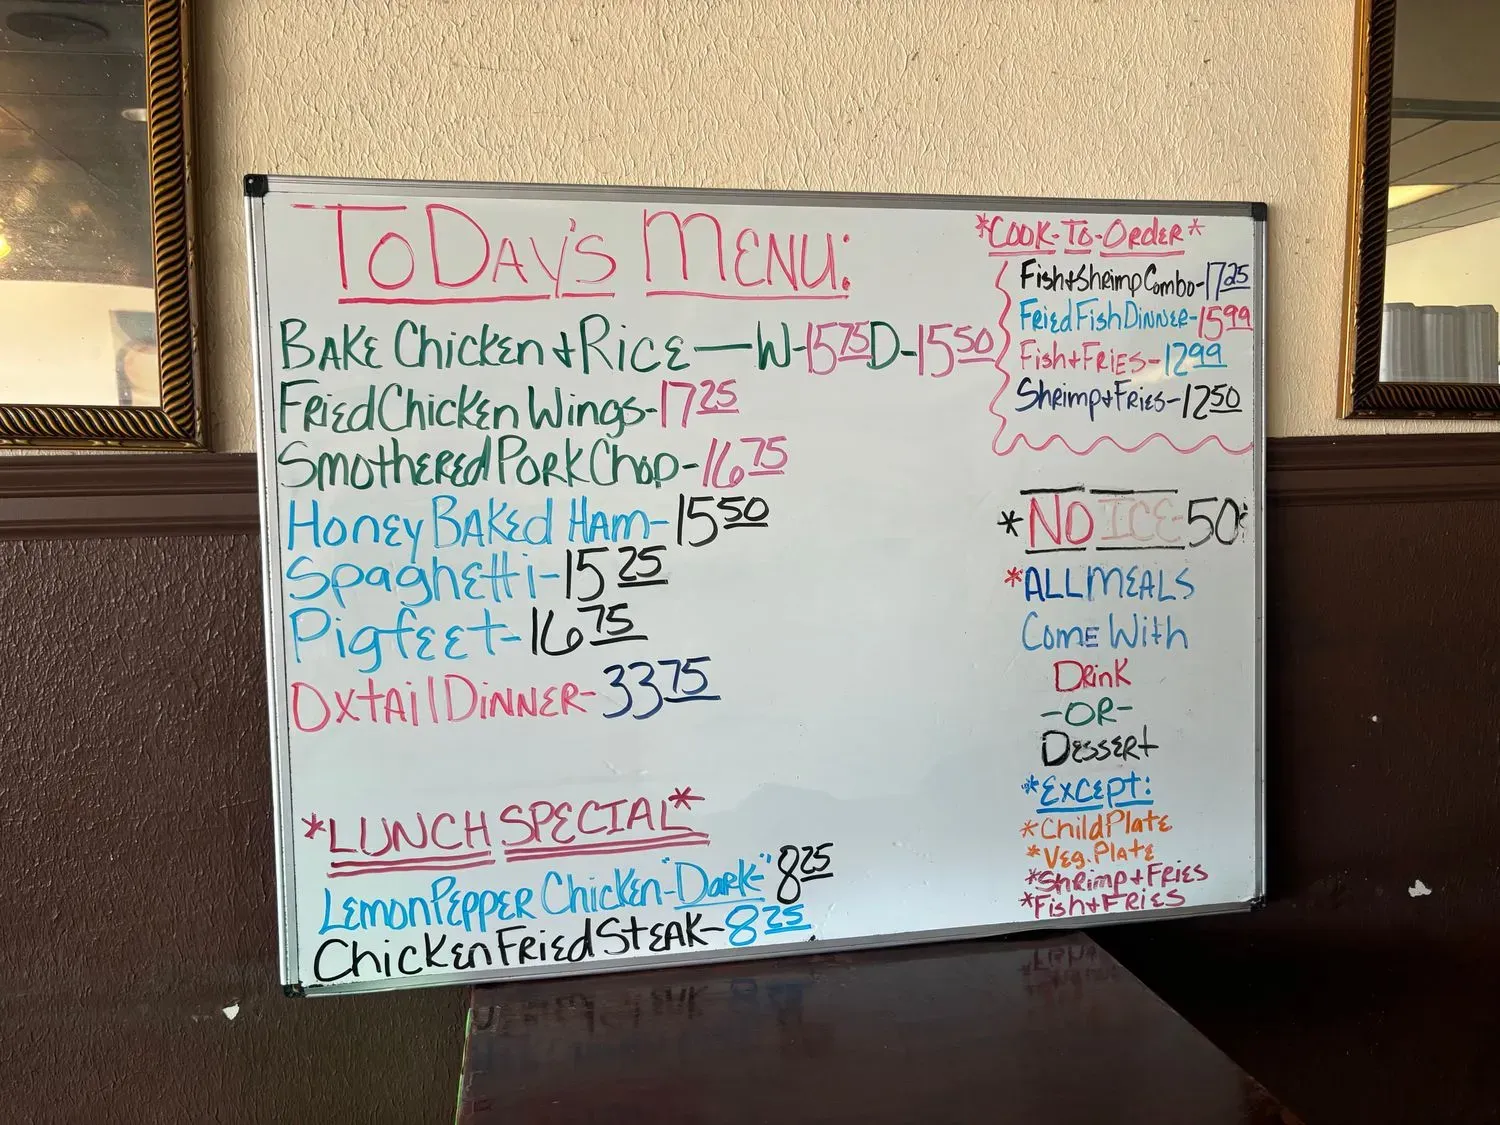 ToDay's Menu:
Bake Chicken + Rice — W-15.75 D-15.50
Fried Chicken Wings-17.25
Smothered Pork Chop-16.75
Honey Baked Ham-15.50
Spaghetti-15.25
Pigfeet-16.75
Oxtail Dinner-33.75
*LUNCH SPECIAL*
Lemon Pepper Chicken-"Dark-" 8.25
Chicken Fried Steak-8.25
*Cook-To-Order*
Fish+Shrimp Combo-17.25
Fried Fish Dinner-15.99
Fish+Fries-12.99
Shrimp+Fries-12.50
*NO ICE-50¢
*ALL MEALS
Come With
Drink
-OR-
Dessert
*Except:
*Child Plate
*Veg. Plate
*Shrimp+Fries
*Fish+Fries